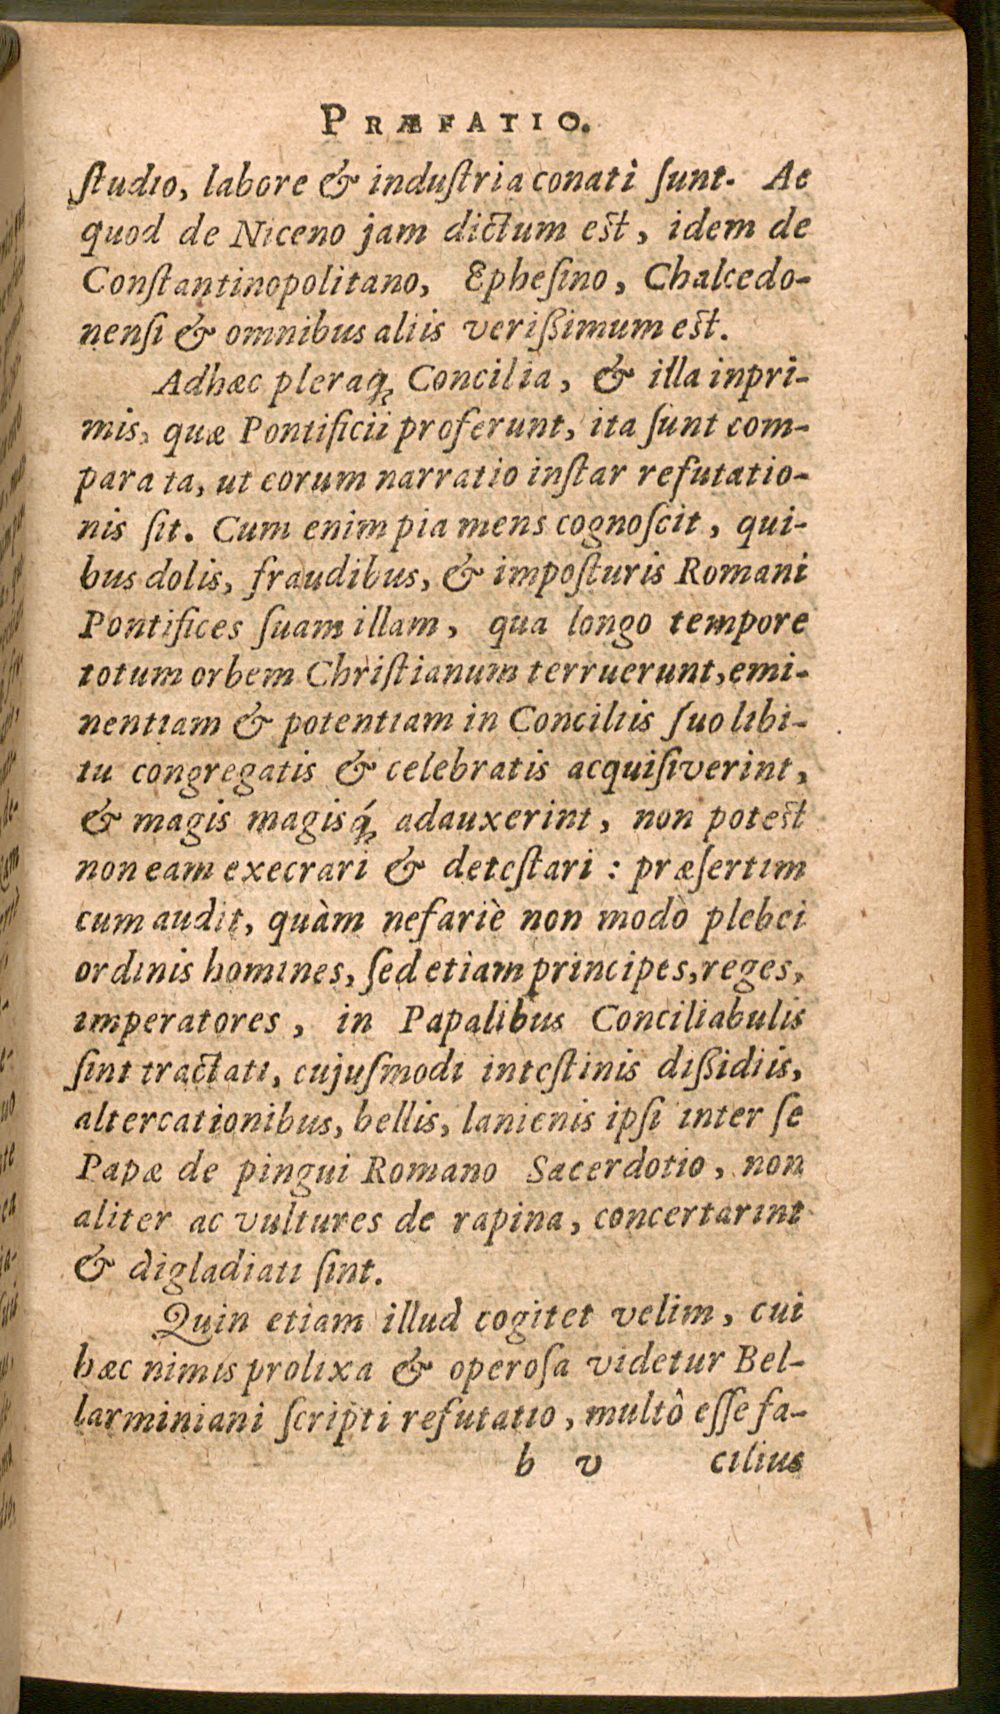 PRÆFATIO.
ſtudio, labore & induſtria conati ſunt. Ac
quod de Niceno jam dictum est, idem de
Conſtantinopolitano, Epheſino, Chalcedo-
nenſi & omnibus aliis verißimum est.
Adhæc pleraq́ꝫ Concilia, & illa inpri-
mis, quæ Pontificii proferunt, ita ſunt com-
parata, ut eorum narratio inſtar refutatio-
nis ſit. Cum enim pia mens cognoſcit, qui-
bus dolis, fraudibus, & impoſturis Romani
Pontifices ſuam illam, qua longo tempore
totum orbem Chriſtianum terruerunt, emi-
nentiam & potentiam in Conciliis ſuo libi-
tu congregatis & celebratis acquiſiverint,
& magis magisq́ꝫ adauxerint, non potest
non eam execrari & deteſtari : præſertim
cum audit, quàm nefariè non modò plebei
ordinis homines, ſed etiam principes, reges,
imperatores, in Papalibus Conciliabulis
ſint tractati, cujuſmodi inteſtinis dißidiis,
altercationibus, bellis, lanienis ipſi inter ſe
Papæ de pingui Romano Sacerdotio, non
aliter ac vultures de rapina, concertarint
& digladiati ſint.
Quin etiam illud cogitet velim, cui
hæc nimis prolixa & operoſa videtur Bel-
larminiani ſcripti refutatio, multô eſſe fa-
b v cilius